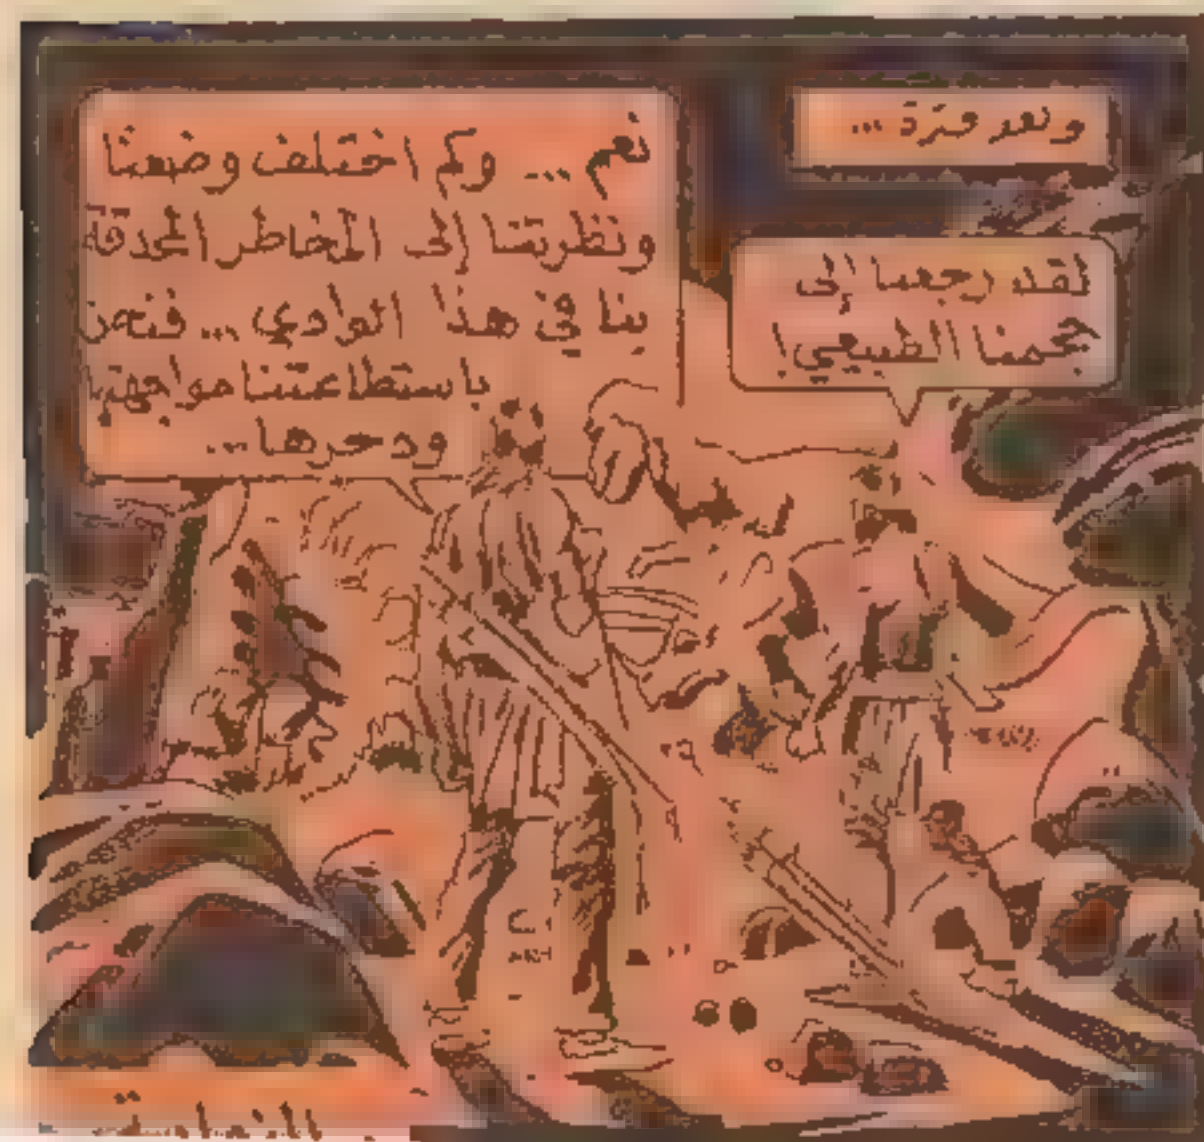 وبعد فترة ...
لقد رجعنا إلى
حجمنا الطبيعي!
نعم ... وكم اختلف وضعنا
ونظرتنا إلى المخاطر المحدقة
بنا في هذا الوادي ... فنحن
باستطاعتنا مواجهتها
ودحرها ...